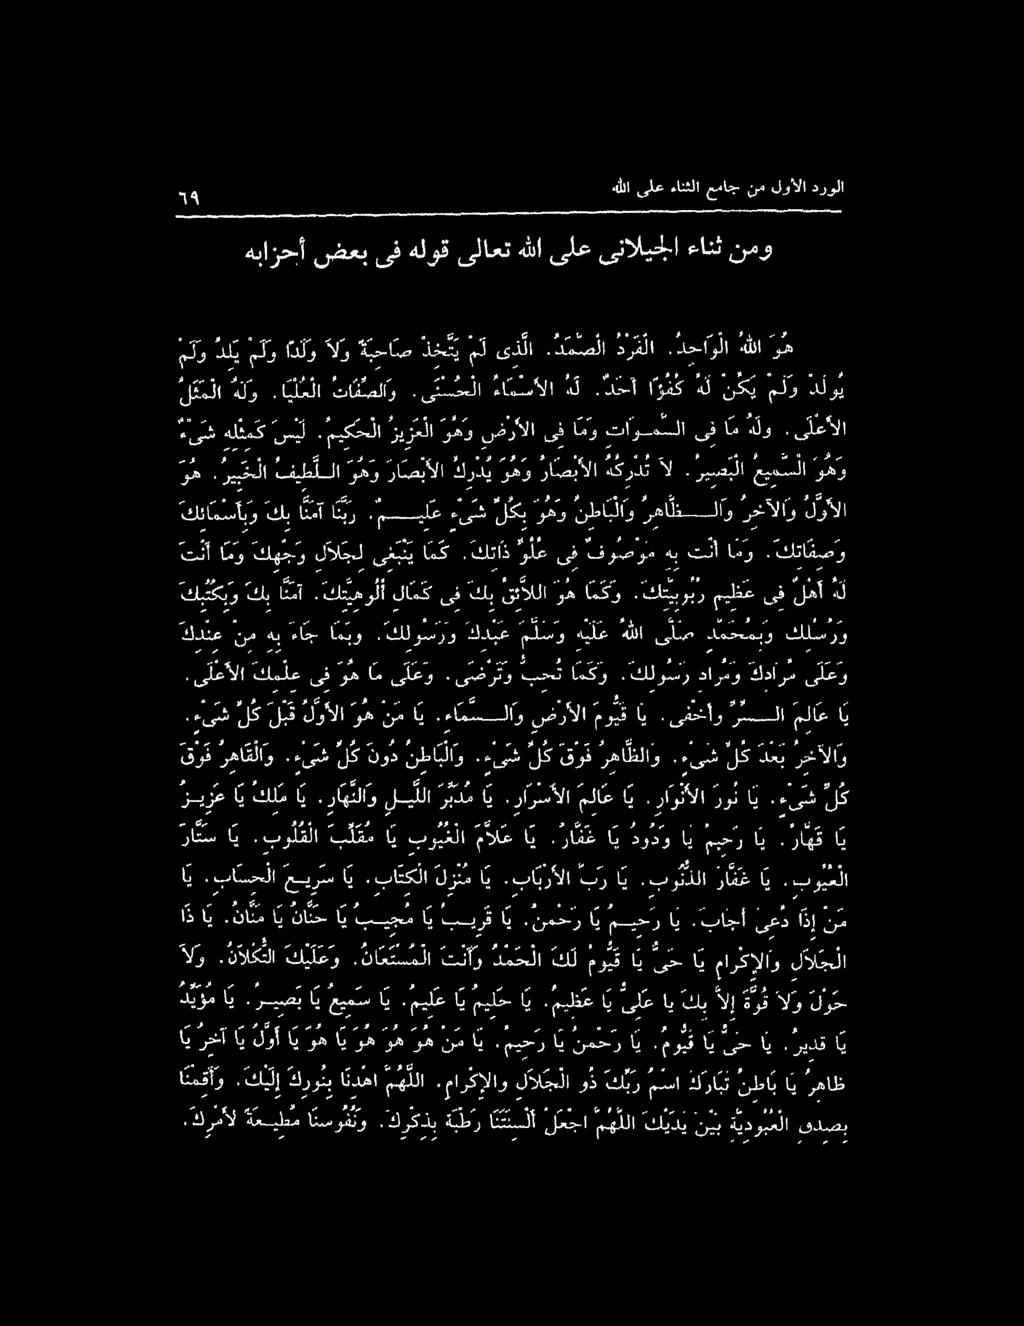 الورد الأول من جامع الثناء على الله
٦٩
ومن ثناء الجيلانى على الله تعالى قوله فى بعض أحزابه
هُوَ اللهُ الْوَاحِدُ. الْفَرْدُ الصَّمَدُ. الَّذِى لَمْ يَتَّخِذْ صَاحِبَةً وَلاَ وَلَدًا وَلَمْ يَلِدْ وَلَمْ
يُولَدْ وَلَمْ يَكُنْ لَهُ كُفُوًا أَحَدٌ. لَهُ الأَسْمَاءُ الْحُسْنَى. وَالصِّفَاتُ الْعُلْيَا. وَلَهُ الْمَثَلُ
الأَعْلَى. وَلَهُ مَا فِى السَّمـوَاتِ وَمَا فِى الأَرْضِ وَهُوَ الْعَزِيزُ الْحَكِيمُ. لَيْسَ كَمِثْلِهِ شَىْءٌ
وَهُوَ السَّمِيعُ الْبَصِيرُ. لاَ تُدْرِكُهُ الأَبْصَارُ وَهُوَ يُدْرِكُ الأَبْصَارَ وَهُوَ اللَّطِيفُ الْخَبِيرُ. هُوَ
الأَوَّلُ وَالآخِرُ وَالظَّاهِرُ وَالْبَاطِنُ وَهُوَ بِكُلِّ شَىْءٍ عَلِيمٌ. رَبَّنَا آمَنَّا بِكَ وَبِأَسْمَائِكَ
وَصِفَاتِكَ. وَمَا أَنْتَ بِهِ مَوْصُوفٌ فِى عُلُوِّ ذَاتِكَ. كَمَا يَنْبَغِى لِجَلاَلِ وَجْهِكَ وَمَا أَنْتَ
لَهُ أَهْلٌ فِى عَظِيمِ رُبُوبِيَّتِكَ. وَكَمَا هُوَ اللاَّئِقُ بِكَ فِى كَمَالِ أُلُوهِيَّتِكَ. آمَنَّا بِكَ وَبِكُتُبِكَ
وَرُسُلِكَ وَبِمُحَمَّدٍ صَلَّى اللهُ عَلَيْهِ وَسَلَّمَ عَبْدِكَ وَرَسُولِكَ. وَبِمَا جَاءَ بِهِ مِنْ عِنْدِكَ
وَعَلَى مُرَادِكَ وَمُرَادِ رَسُولِكَ. وَكَمَا تُحِبُّ وَتَرْضَى. وَعَلَى مَا هُوَ فِى عِلْمِكَ الأَعْلَى.
يَا عَالِمَ السِّرِّ وَأَخْفَى. يَا قَيُّومَ الأَرْضِ وَالسَّمَاءِ. يَا مَنْ هُوَ الأَوَّلُ قَبْلَ كُلِّ شَىْءٍ.
وَالآخِرُ بَعْدَ كُلِّ شَىْءٍ. وَالظَّاهِرُ فَوْقَ كُلِّ شَىْءٍ. وَالْبَاطِنُ دُونَ كُلِّ شَىْءٍ. وَالْقَاهِرُ فَوْقَ
كُلِّ شَىْءٍ. يَا نُورَ الأَنْوَارِ. يَا عَالِمَ الأَسْرَارِ. يَا مُدَبِّرَ اللَّيْلِ وَالنَّهَارِ. يَا مَلِكُ يَا عَزِيزُ
يَا قَهَّارُ. يَا رَحِيمُ يَا وَدُودُ يَا غَفَّارُ. يَا عَلاَّمَ الْغُيُوبِ يَا مُقَلِّبَ الْقُلُوبِ. يَا سَتَّارَ
الْعُيُوبِ. يَا غَفَّارَ الذُّنُوبِ. يَا رَبَّ الأَرْبَابِ. يَا مُنْزِلَ الْكِتَابِ. يَا سَرِيعَ الْحِسَابِ. يَا
مَنْ إِذَا دُعِىَ أَجَابَ. يَا رَحِيمُ يَا رَحْمنُ. يَا قَرِيبُ يَا مُجِيبُ يَا حَنَّانُ يَا مَنَّانُ. يَا ذَا
الْجَلاَلِ وَالإِكْرَامِ يَا حَىُّ يَا قَيُّومُ لَكَ الْحَمْدُ وَأَنْتَ الْمُسْتَعَانُ. وَعَلَيْكَ التُّكْلاَنُ. وَلاَ
حَوْلَ وَلاَ قُوَّةَ إِلاَّ بِكَ يَا عَلِىُّ يَا عَظِيمُ. يَا حَلِيمُ يَا عَلِيمُ. يَا سَمِيعُ يَا بَصِيرُ. يَا مُؤَيِّدُ
يَا قَدِيرُ. يَا حَىُّ يَا قَيُّومُ. يَا رَحْمنُ يَا رَحِيمُ. يَا مَنْ هُوَ هُوَ هُوَ يَا هُوَ يَا أَوَّلُ يَا آخِرُ يَا
ظَاهِرُ يَا بَاطِنُ تَبَارَكَ اسْمُ رَبِّكَ ذُو الْجَلاَلِ وَالإِكْرَامِ. اللَّهُمَّ اهْدِنَا بِنُورِكَ إِلَيْكَ. وَأَقِمْنَا
بِصِدْقِ الْعُبُودِيَّةِ بَيْنَ يَدَيْكَ اللَّهُمَّ اجْعَلْ أَلْسِنَتَنَا رَطْبَةً بِذِكْرِكَ. وَنُفُوسَنَا مُطِيعَةً لأَمْرِكَ.